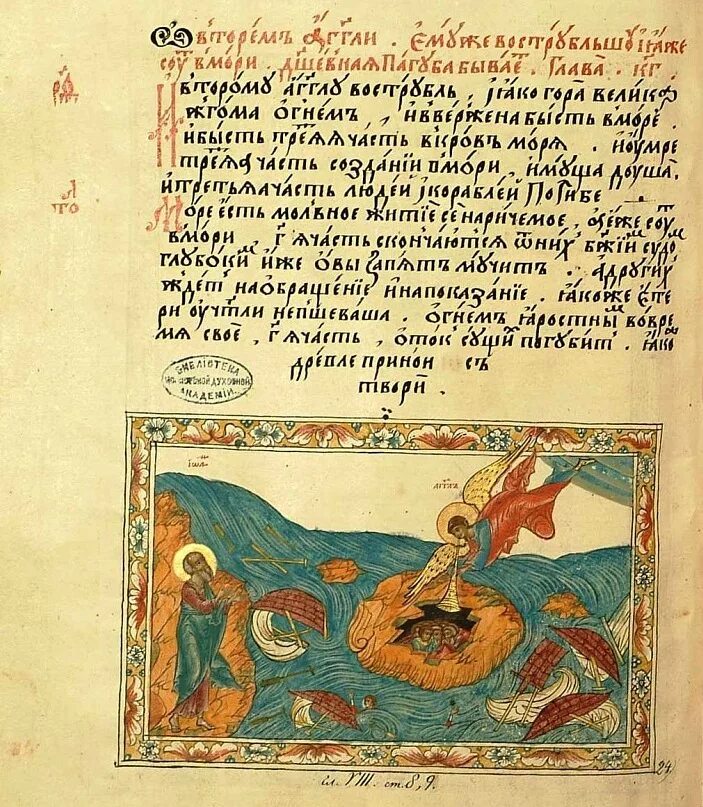 Ѻ вторемъ а҆́гг҃ли . Є҆му́же вострꙋ́бльшꙋ и҆̀ и҆̀же
сꙋ́т въ мори . дш҃евнаѧ па́гꙋба быва́е . Глава̀ . к҃г .
И҆ второмꙋ а҆́гг҃лꙋ вострꙋбль , ꙗ҆́ко гора̀ велика
жго́ма ѻ҆гнемъ , и҆ вве́ржена бысть в море .
и҆ бысть тре́тїѧѧ ча́сть в кро́въ мо́рѧ . и҆ ᲂу҆́мре
тре́тїѧѧ ча́сть созда́нїи в мо́ри , и҆мꙋща дꙋша̀ .
и҆ тре́тьѧѧ ча́сть люде́й и҆ кора́блей поги́бе
Мо́ре є҆сть мо́лвное житїѐ сѐ нарица́емое , в не́мже сꙋ́т
в мори г҃ ѧ ча́сть сконча́ютсѧ ѿ ни́х бж҃їим сꙋдо
глꙋбо́ким и҆̀же ѻ҆́вы ᲂу҆́бѡ мꙋчитъ . а҆ дрꙋги́х
жде́т на ѻ҆браще́нїе и҆ на показа́нїе . ꙗ҆́коже є҆те
ри ᲂу҆чтли непщева́ша . ѻ҆гне́мъ ꙗ҆́ростны́м во вре
мѧ своѐ , г҃ ѧ ча́сть , ѻ҆ток сꙋ́щи погꙋби́т . ꙗ҆́ко
дре́вле при нои съ
твори .
БИБЛІОТЕКА
ДУХОВНОЙ
АКАДЕМІИ
Іѡа
а҆́гг҃лъ
гл. VIII. ст. 8, 9.
24